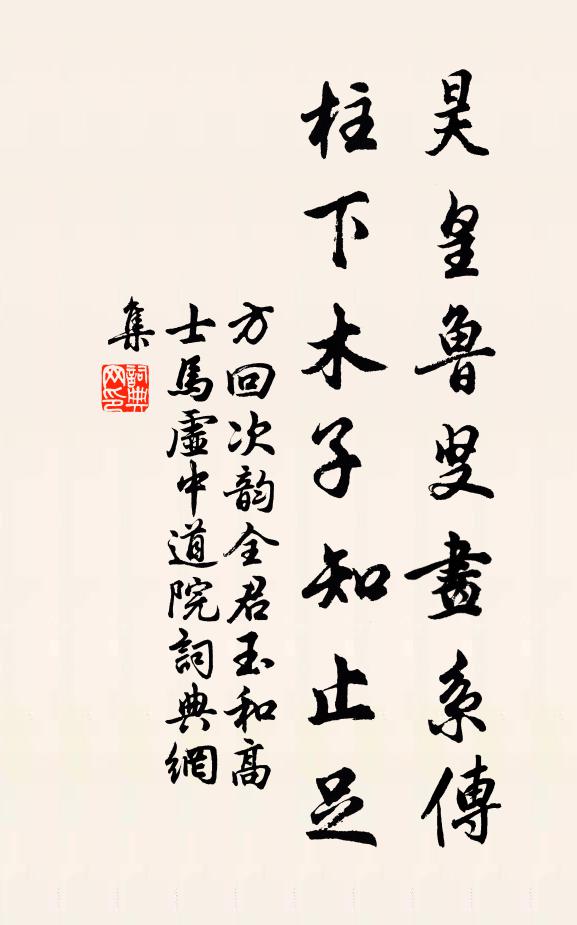 昊皇魯叟畫系傳
柱下木子知止足
方回次韵全君玉和高
士馬虛中道院詞典網
集
詞典
网印